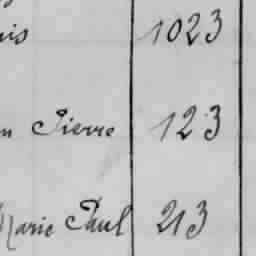 is 1023
n Pierre 123
Marie Paul 213